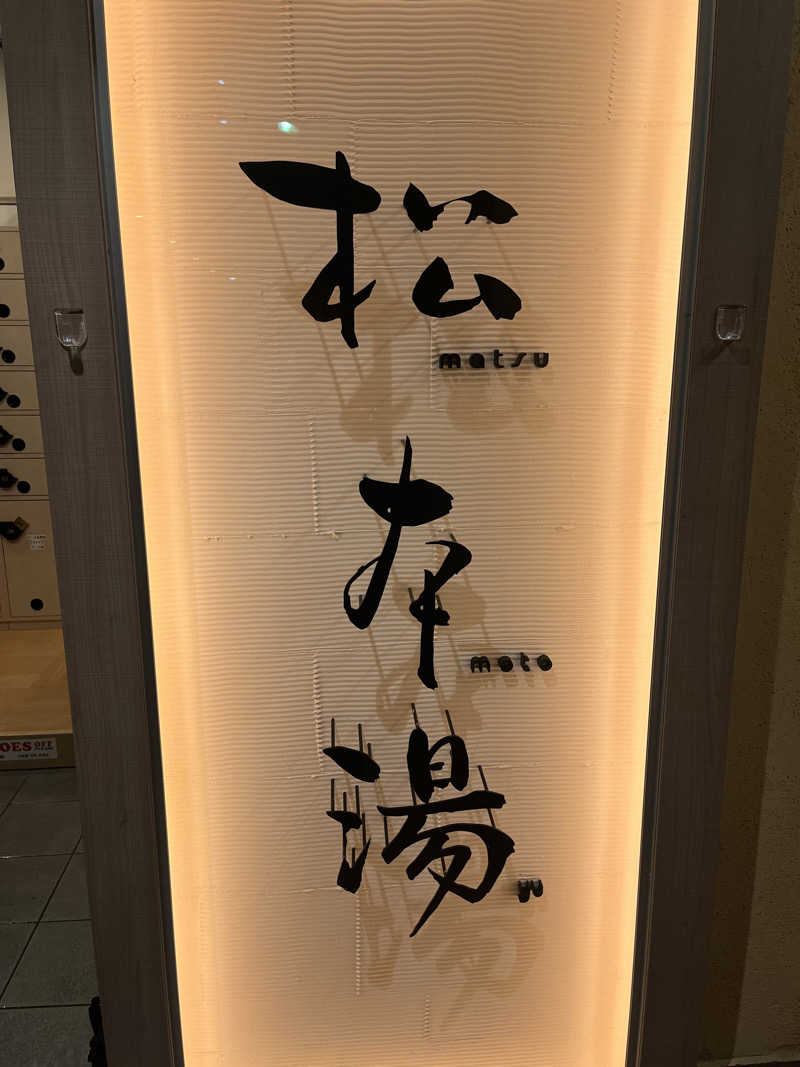 松
matsu
本
moto
湯
yu
OES OFF